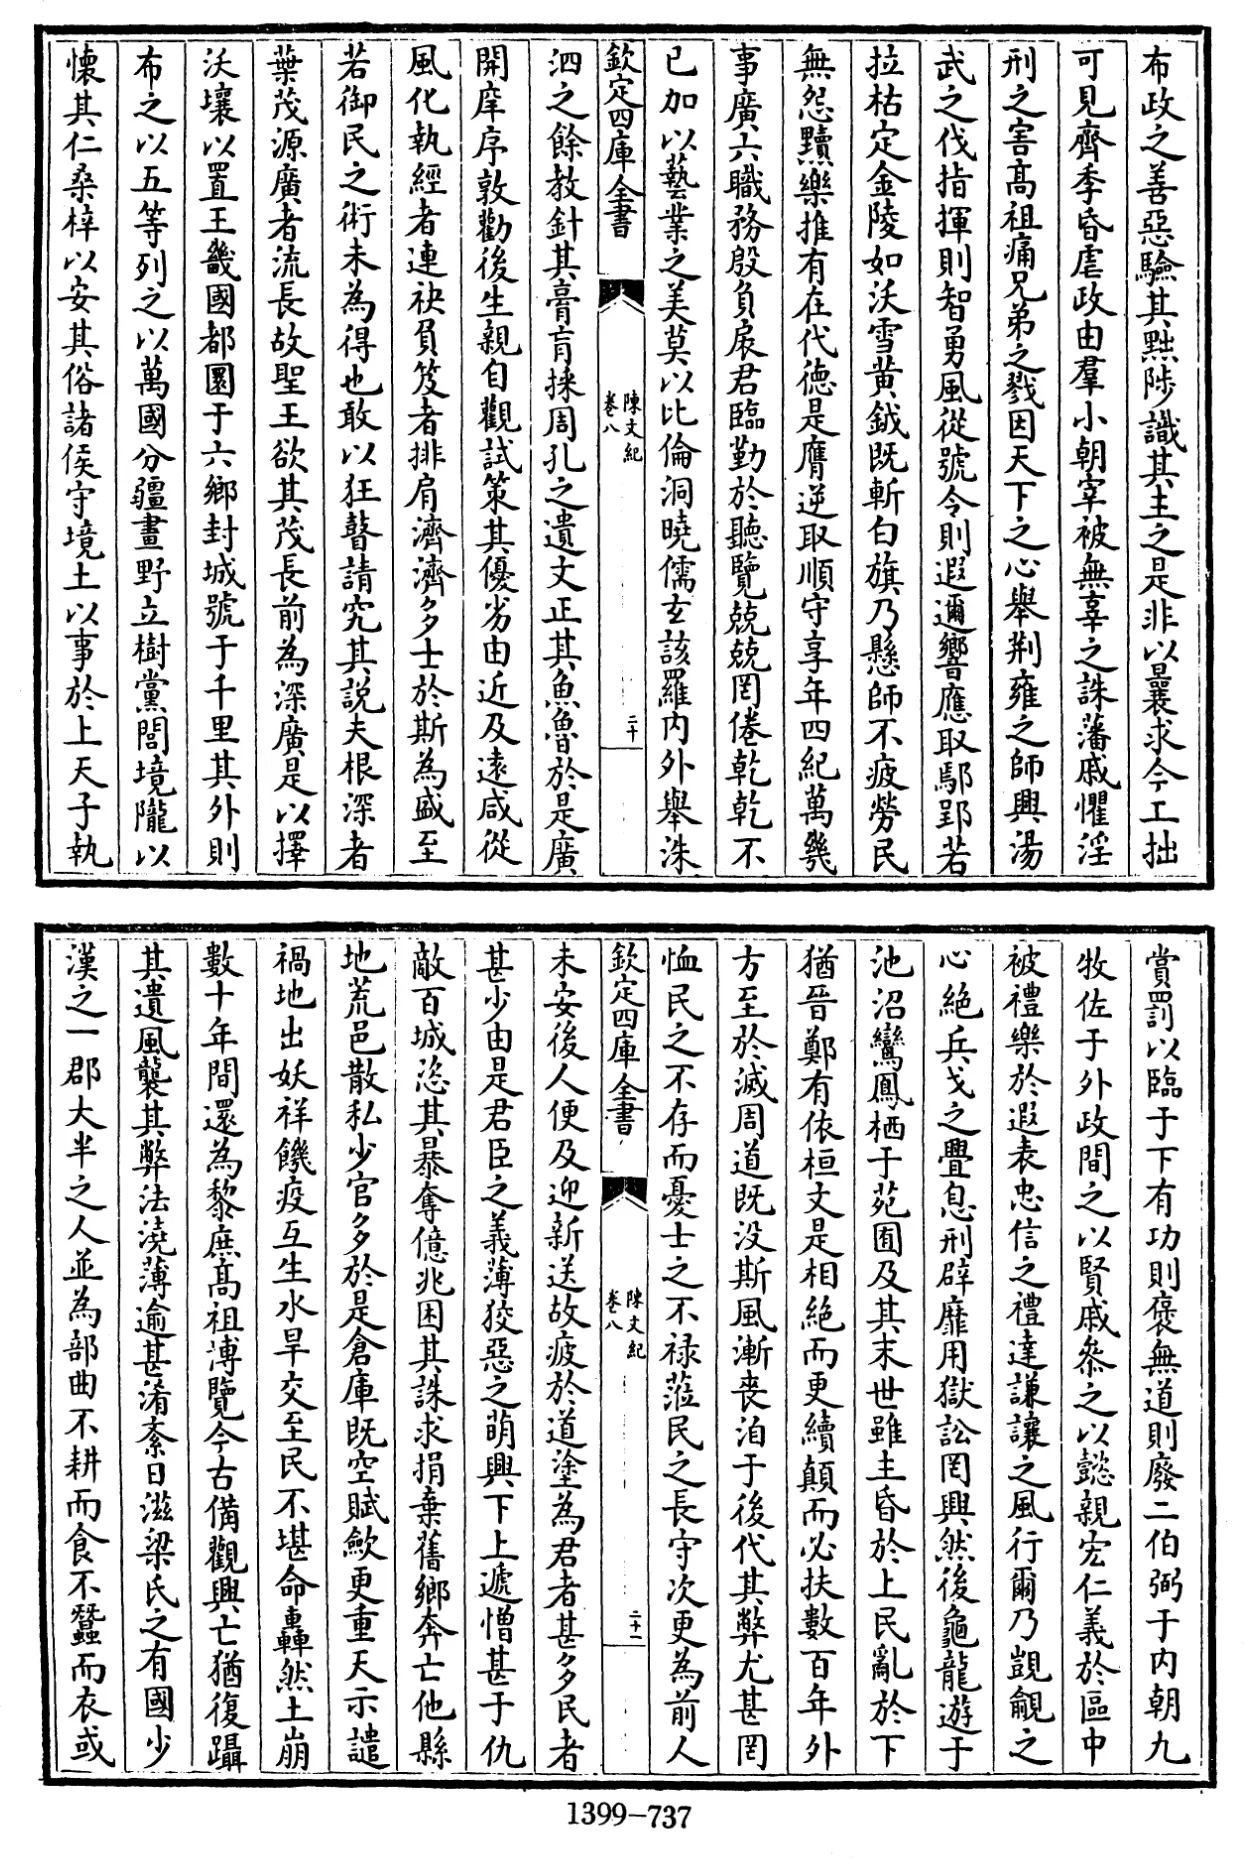 布政之善惡驗其黜陟識其主之是非以曩求今工拙
可見齊季昏虐政由羣小朝宰被無辜之誅藩戚懼淫
刑之害髙祖痛兄弟之戮因天下之心舉荆雍之師興湯
武之伐指揮則智勇風從號令則遐邇響應取鄢郢若
拉枯定金陵如沃雪黄鉞既斬白旗乃懸師不疲勞民
無怨黷樂推有在代德是膺逆取順守享年四紀萬㡬
事廣六職務殷負扆君臨勤於聽覽兢兢罔倦乾乾不
已加以藝業之美莫以比倫洞曉儒玄該羅内外舉洙
欽定四庫全書
陳文紀
卷八
二十
泗之餘教針其膏肓採周孔之遺文正其魚魯於是廣
開庠序敦勸後生親自觀試策其優劣由近及遠咸從
風化執經者連袂負笈者排肩濟濟多士於斯為盛至
若御民之術未為得也敢以狂瞽請究其說夫根深者
葉茂源廣者流長故聖王欲其茂長前為深廣是以擇
沃壤以置王畿國都圜于六鄉封城號于千里其外則
布之以五等列之以萬國分疆畫野立樹黨閭境隴以
懐其仁桑梓以安其俗諸侯守境土以事於上天子執
賞罰以臨于下有功則褒無道則廢二伯弼于内朝九
牧佐于外政間之以賢戚叅之以懿親宏仁義於區中
被禮樂於遐表忠信之禮達謙讓之風行爾乃覬覦之
心絶兵戈之舋息刑辟靡用獄訟罔興然後龜龍遊于
池沼鸞鳳栖于苑囿及其末世雖主昏於上民亂於下
猶晉鄭有依桓文是相絶而更續顛而必扶數百年外
方至於滅周道既沒斯風漸喪洎于後代其弊尤甚罔
恤民之不存而憂士之不禄蒞民之長守次更為前人
欽定四庫全書
陳文紀
卷八
二十一
未安後人便及迎新送故疲於道塗為君者甚多民者
甚少由是君臣之義薄狡惡之萌興下上遞憎甚于仇
敵百城恣其暴奪億兆困其誅求捐棄舊鄉奔亡他縣
地荒邑散私少官多於是倉庫既空賦歛更重天示譴
禍地出妖祥饑疫互生水旱交至民不堪命轟然土崩
數十年間還為黎庶髙祖博覽今古備觀興亡猶復躡
其遺風襲其弊法澆薄逾甚淆紊日滋梁氏之有國少
漢之一郡大半之人並為部曲不耕而食不蠶而衣或
1399-737